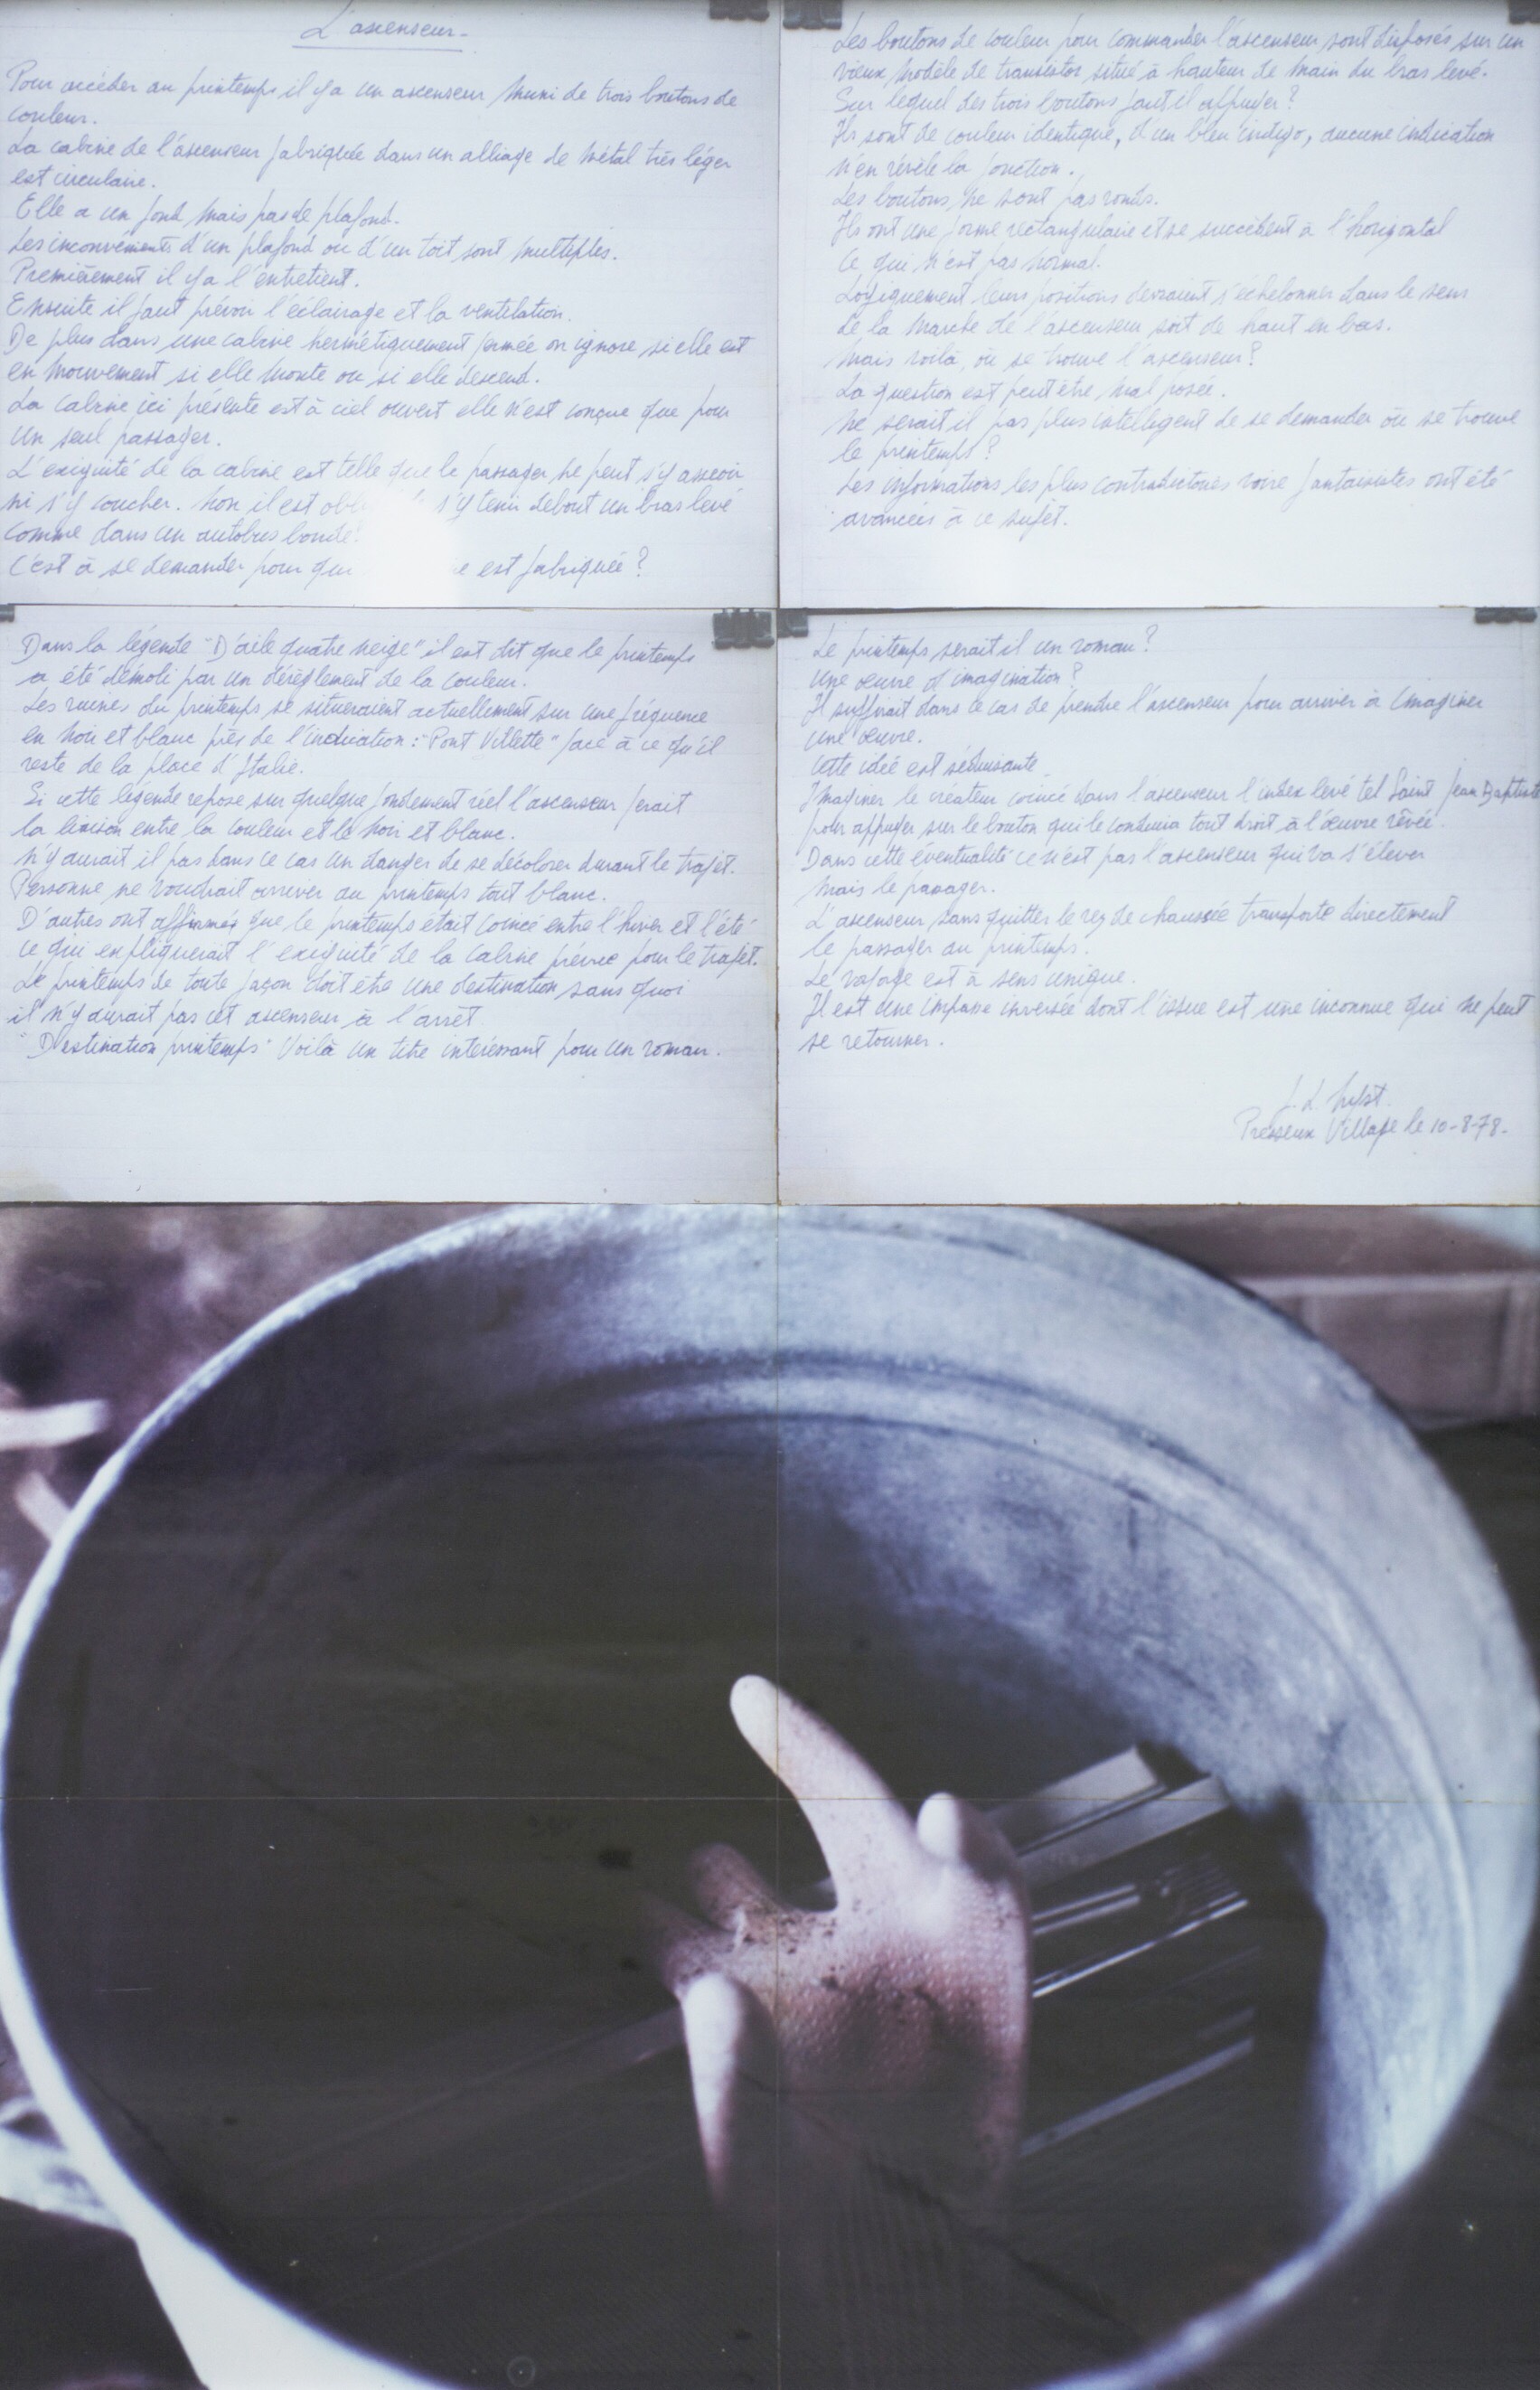 L'ascenseur-
Pour accéder au printemps il y a un ascenseur muni de trois boutons de
couleur.
La cabine de l'ascenseur fabriquée dans un alliage de métal très léger
est circulaire.
Elle a un fond mais pas de plafond.
Les inconvénients d'un plafond ou d'un toit sont multiples.
Premièrement il y a l'entretient.
Ensuite il faut prévoir l'éclairage et la ventilation.
De plus dans une cabine hermétiquement fermée on ignore si elle est
en mouvement si elle monte ou si elle descend.
La cabine ici présente est à ciel ouvert elle n'est conçue que pour
un seul passager.
L'exiguité de la cabine est telle que le passager ne peut s'y asseoir
ni s'y coucher. Non il est s'y tenir debout un bras levé
comme dans un autobus bondé.
C'est à se demander pour est fabriquée ?
Les boutons de couleur pour commander l'ascenseur sont disposés sur un
vieux modèle de transistor situé à hauteur de main du bras levé.
Sur lequel des trois boutons faut il appuyer ?
Ils sont de couleur identique, d'un bleu indigo, aucune indication
n'en révèle la fonction.
Les boutons ne sont pas ronds.
Ils ont une forme rectangulaire et se succèdent à l'horizontal
ce qui n'est pas normal.
Logiquement leurs positions devraient s'échelonner dans le sens
de la marche de l'ascenseur soit de haut en bas.
Mais voilà, où se trouve l'ascenseur ?
La question est peut être mal posée.
Ne serait il pas plus intelligent de se demander où se trouve
le printemps ?
Les informations les plus contradictoires voire fantaisistes ont été
avancées à ce sujet.
Dans la légende "D'aile quatre neige" il est dit que le printemps
a été démoli par un dérèglement de la couleur.
Les ruines du printemps se situeraient actuellement sur une fréquence
en noir et blanc près de l'indication : "Pont Villette" face à ce qu'il
reste de la place d'Italie.
Si cette légende repose sur quelque fondement réel l'ascenseur ferait
la liaison entre la couleur et le noir et blanc.
N'y aurait il pas dans ce cas un danger de se décolorer durant le trajet.
Personne ne voudrait arriver au printemps tout blanc.
D'autres ont affirmés que le printemps était coincé entre l'hiver et l'été
ce qui expliquerait l'exiguité de la cabine prévue pour le trajet.
Le printemps de toute façon doit être une destination sans quoi
il n'y aurait pas cet ascenseur à l'arrêt.
"Destination printemps" Voilà un titre intéressant pour un roman.
Le printemps serait il un roman ?
Une œuvre d'imagination ?
Il suffirait dans ce cas de prendre l'ascenseur pour arriver à imaginer
une œuvre.
Cette idée est séduisante
Imaginer le créateur coincé dans l'ascenseur l'index levé tel Saint Jean Baptiste
pour appuyer sur le bouton qui le conduira tout droit à l'œuvre rêvée.
Dans cette éventualité ce n'est pas l'ascenseur qui va s'élever
mais le passager.
L'ascenseur sans quitter le rez de chaussée transporte directement
le passager au printemps.
Le voyage est à sens unique.
Il est une impasse inversée dont l'issue est une inconnue qui ne peut
se retourner.
J. L. Nyst.
Presseux Village le 10-8-78-